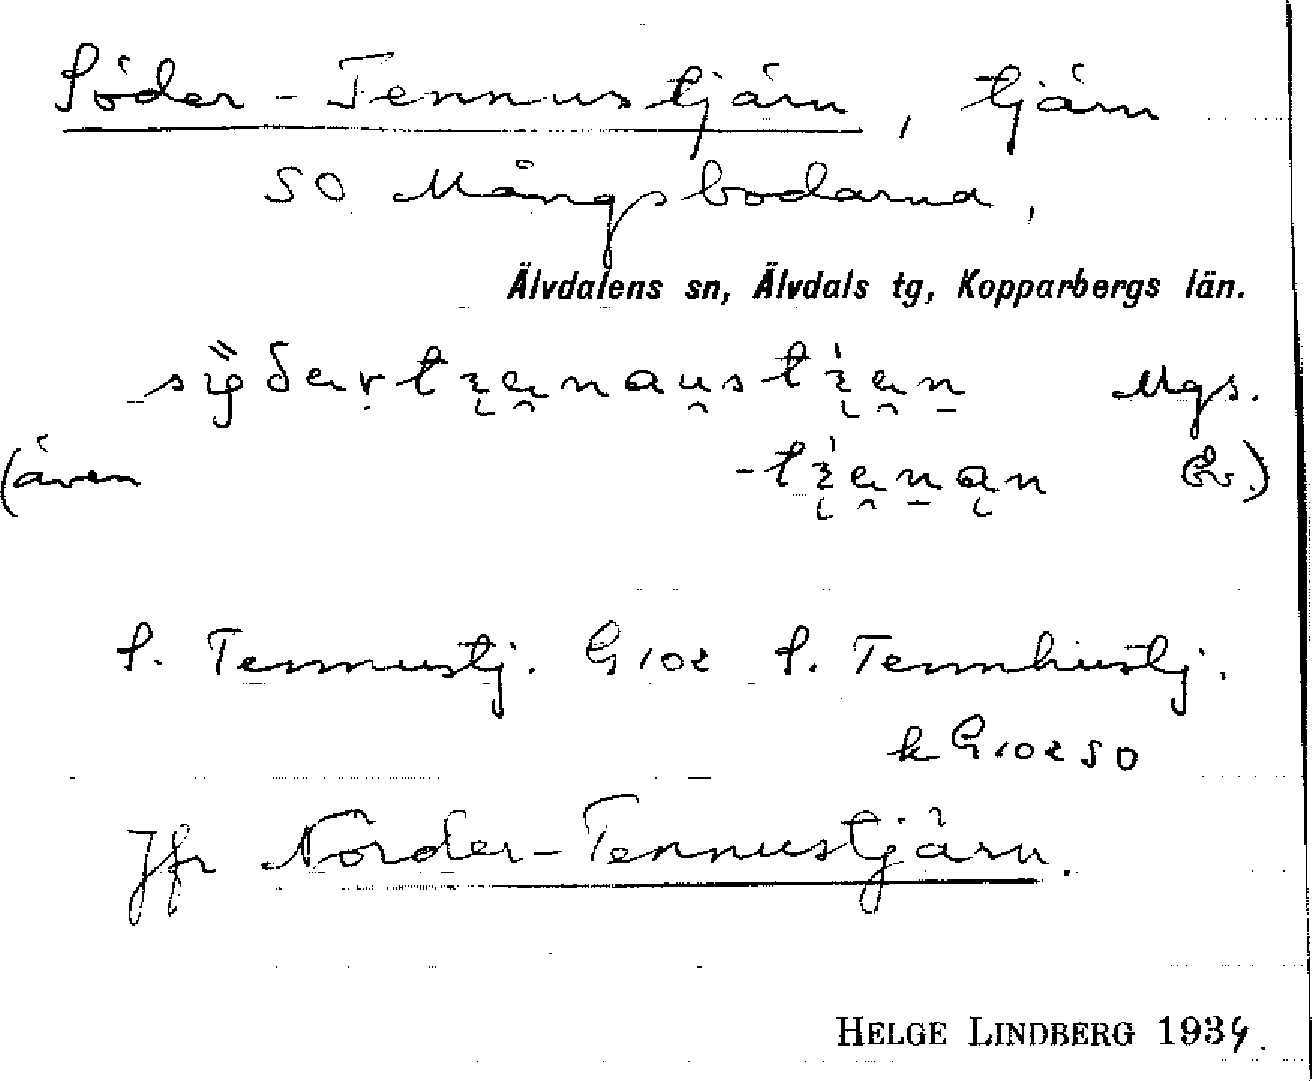 Söder-Tennustjärn, tjärn
SO Mångsbodarna,
Älvdalens sn, Älvdals tg, Kopparbergs län.
Mgs.
(även Ev.)
S. Tennustj. G 102 S. Tennhustj.
k G 102 SO
Jfr Norder-Tennustjärn.
HELGE LINDBERG 1934.